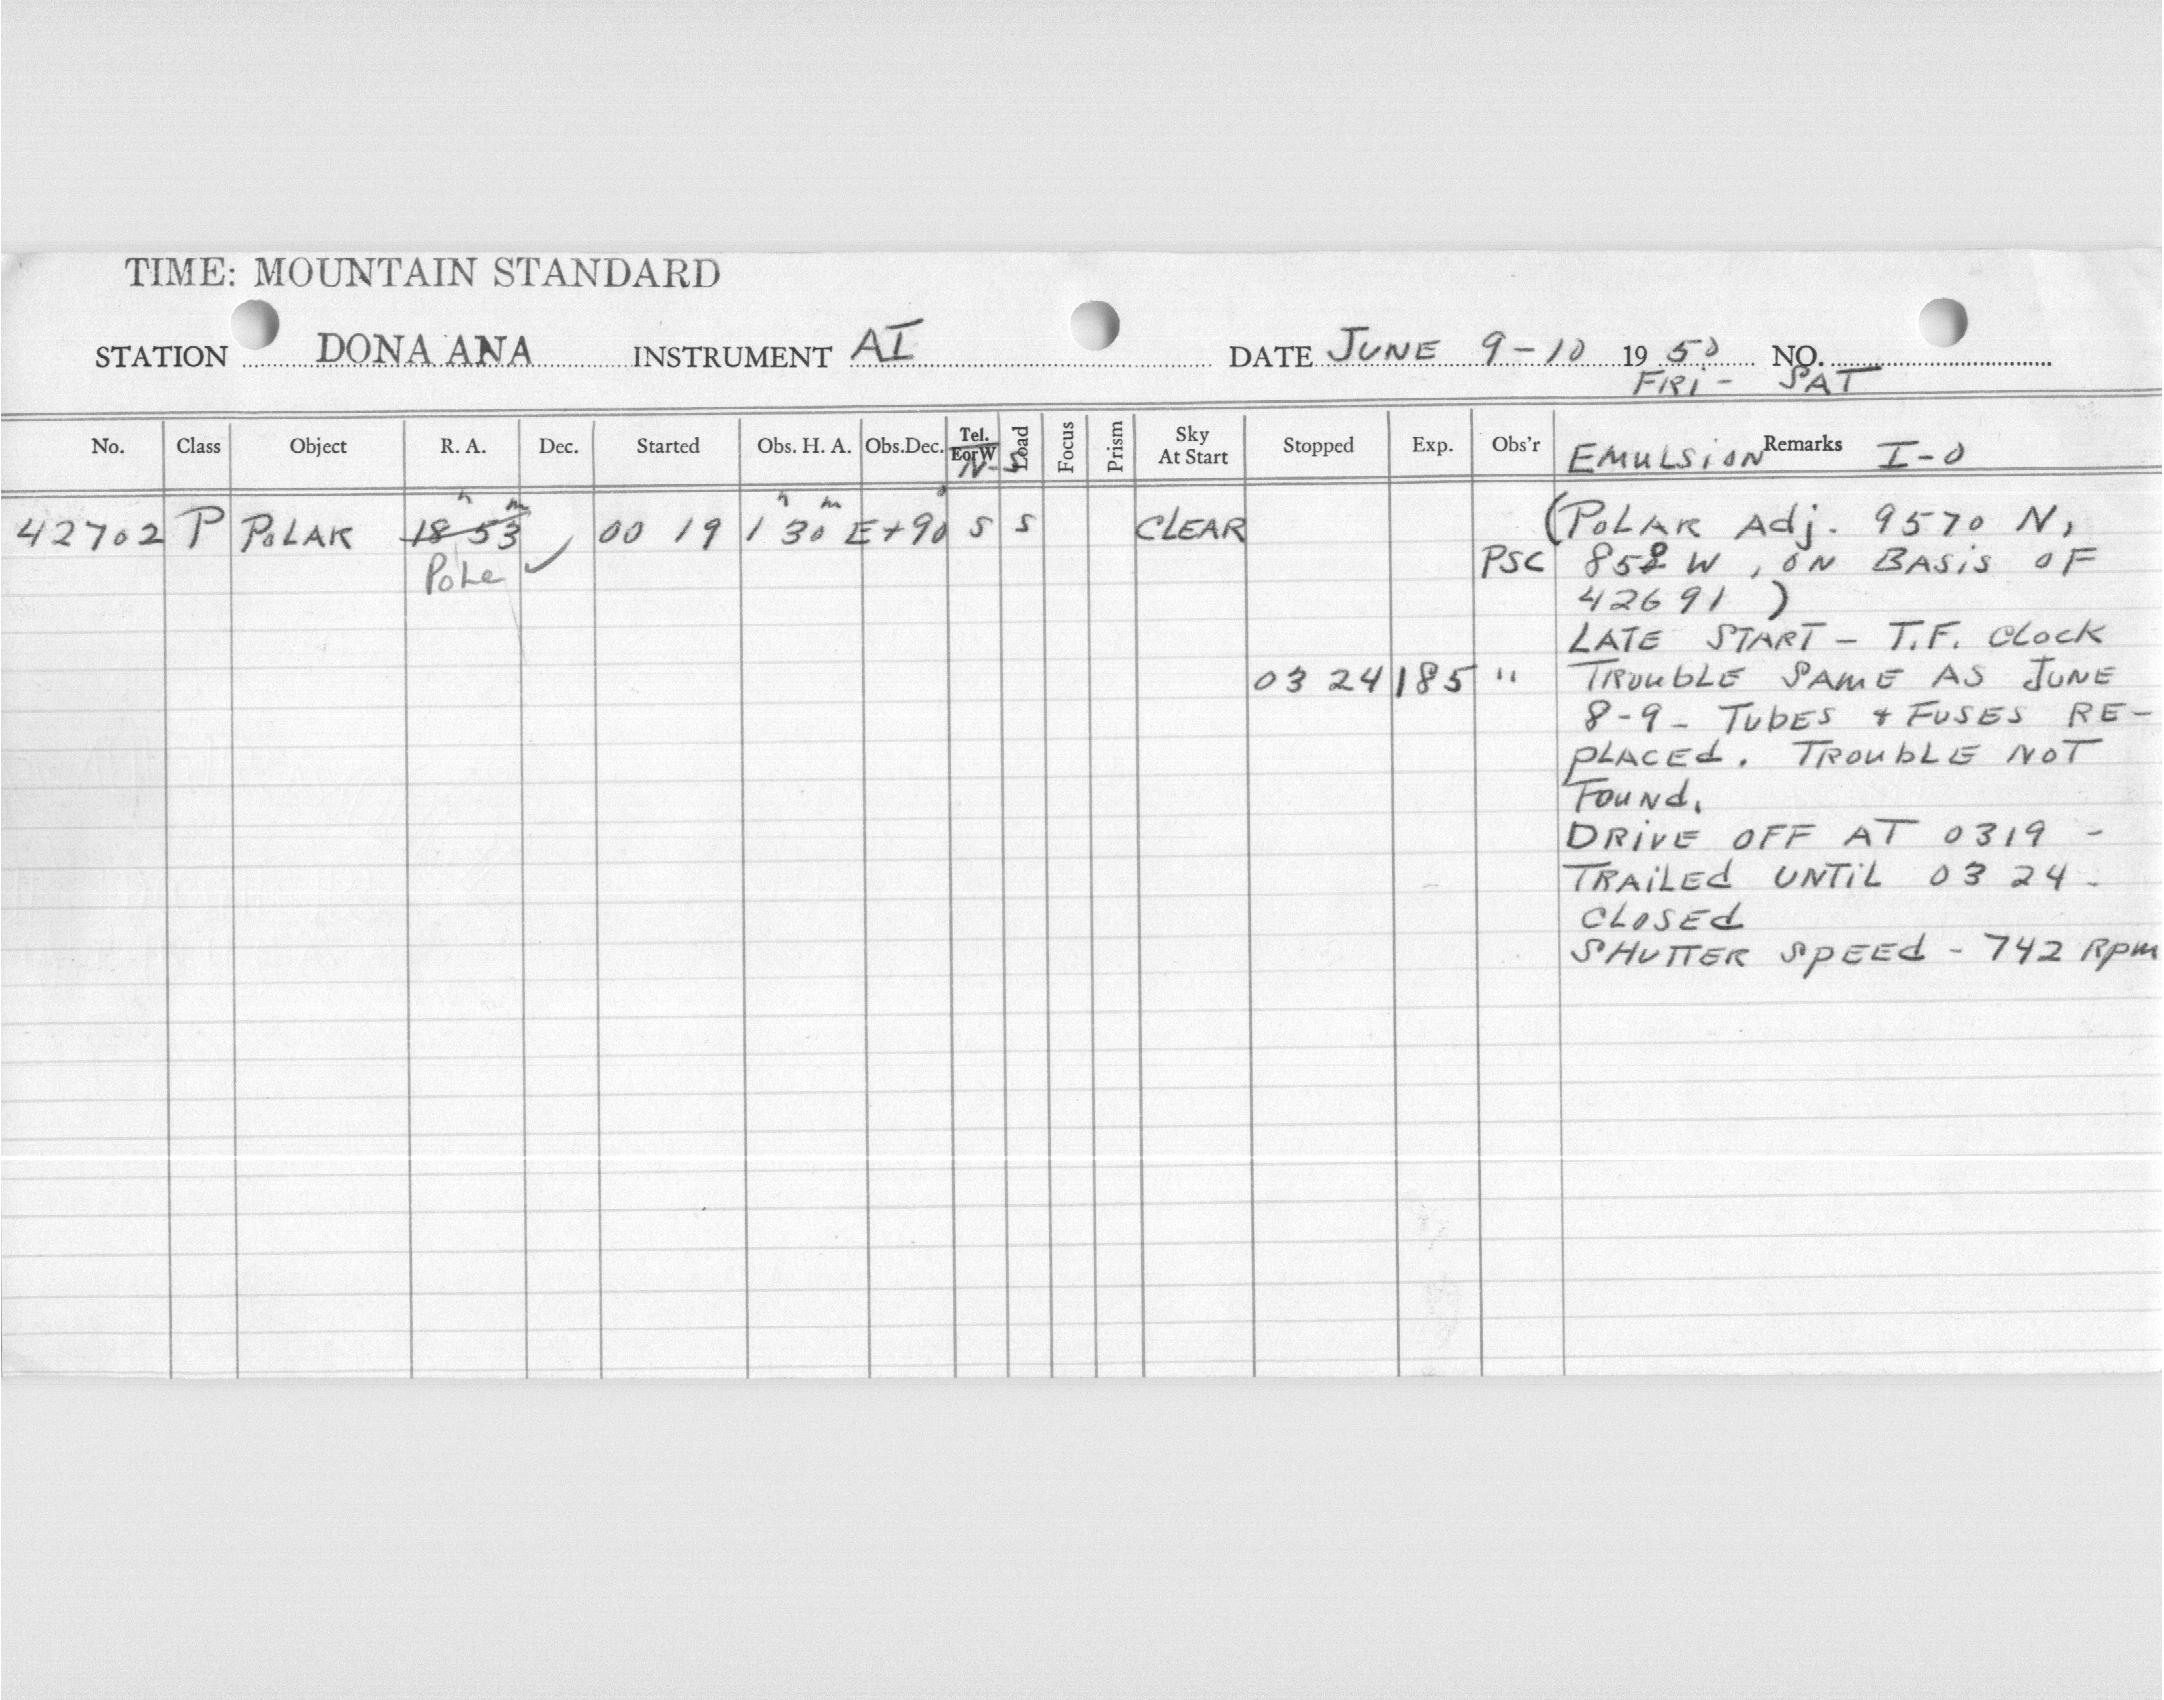 TIME: MOUNTAIN STANDARD
STATION DONA ANA INSTRUMENT AI DATE JUNE 9-10 1950 NO.
FRI - SAT
No. Class Object R. A. Dec. Started Obs. H. A. Obs.Dec. Tel. EorW N-S Load Focus Prism Sky At Start Stopped Exp. Obs'r Remarks EMULSION I-O
42702 P POLAR 18h 53m 00 19 1h 30m E +90° S S CLEAR (POLAR Adj. 9570 N,
Pole ✓ PSC 858 W, ON BASIS OF
42691 )
LATE START - T.F. CLOCK
03 24 185 " TROUBLE SAME AS JUNE
8-9 - TUBES & FUSES RE-
PLACED. TROUBLE NOT
FOUND.
DRIVE OFF AT 0319 -
TRAILED UNTIL 03 24 -
CLOSED
SHUTTER SPEED - 742 RPM